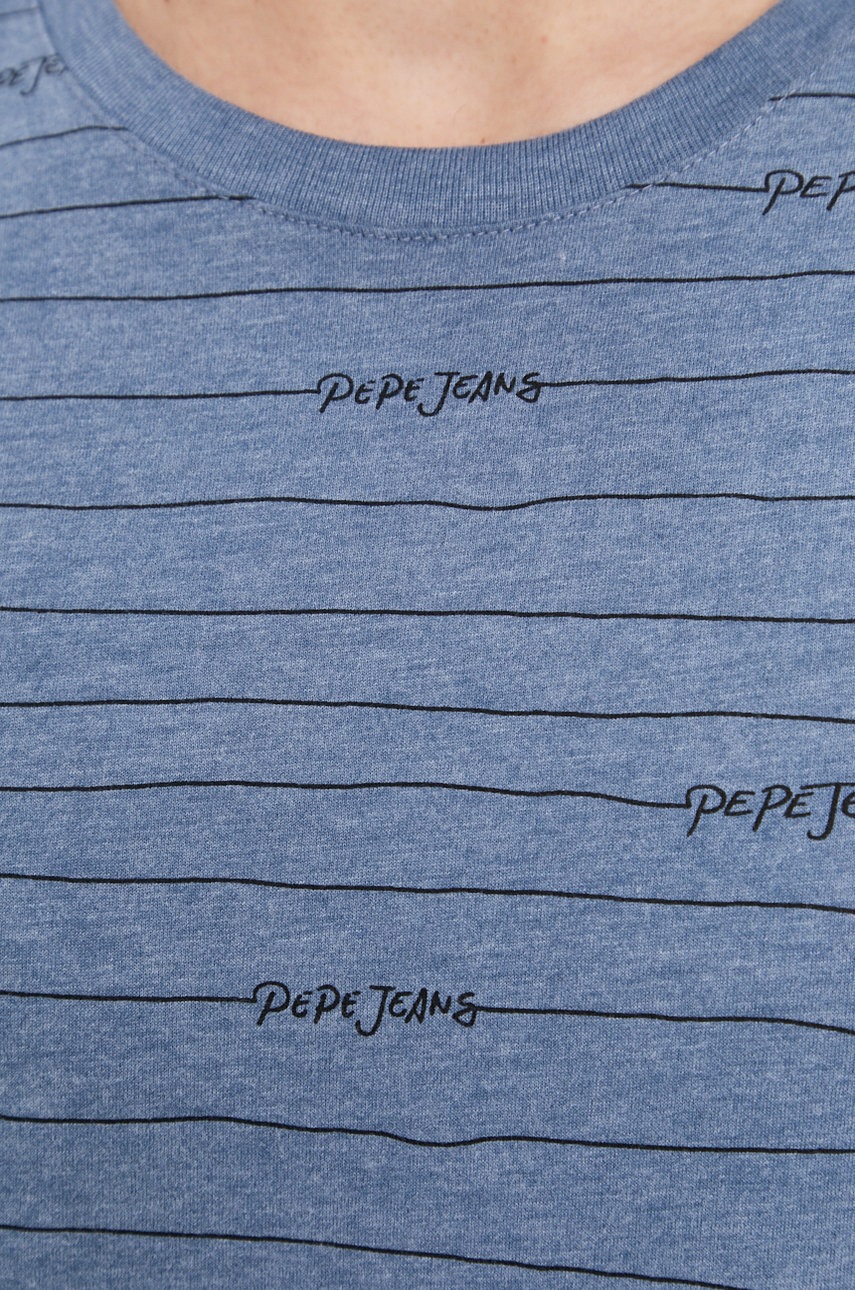 PEPE
PEPE JEANS
PEPE JE
PEPE JEANS